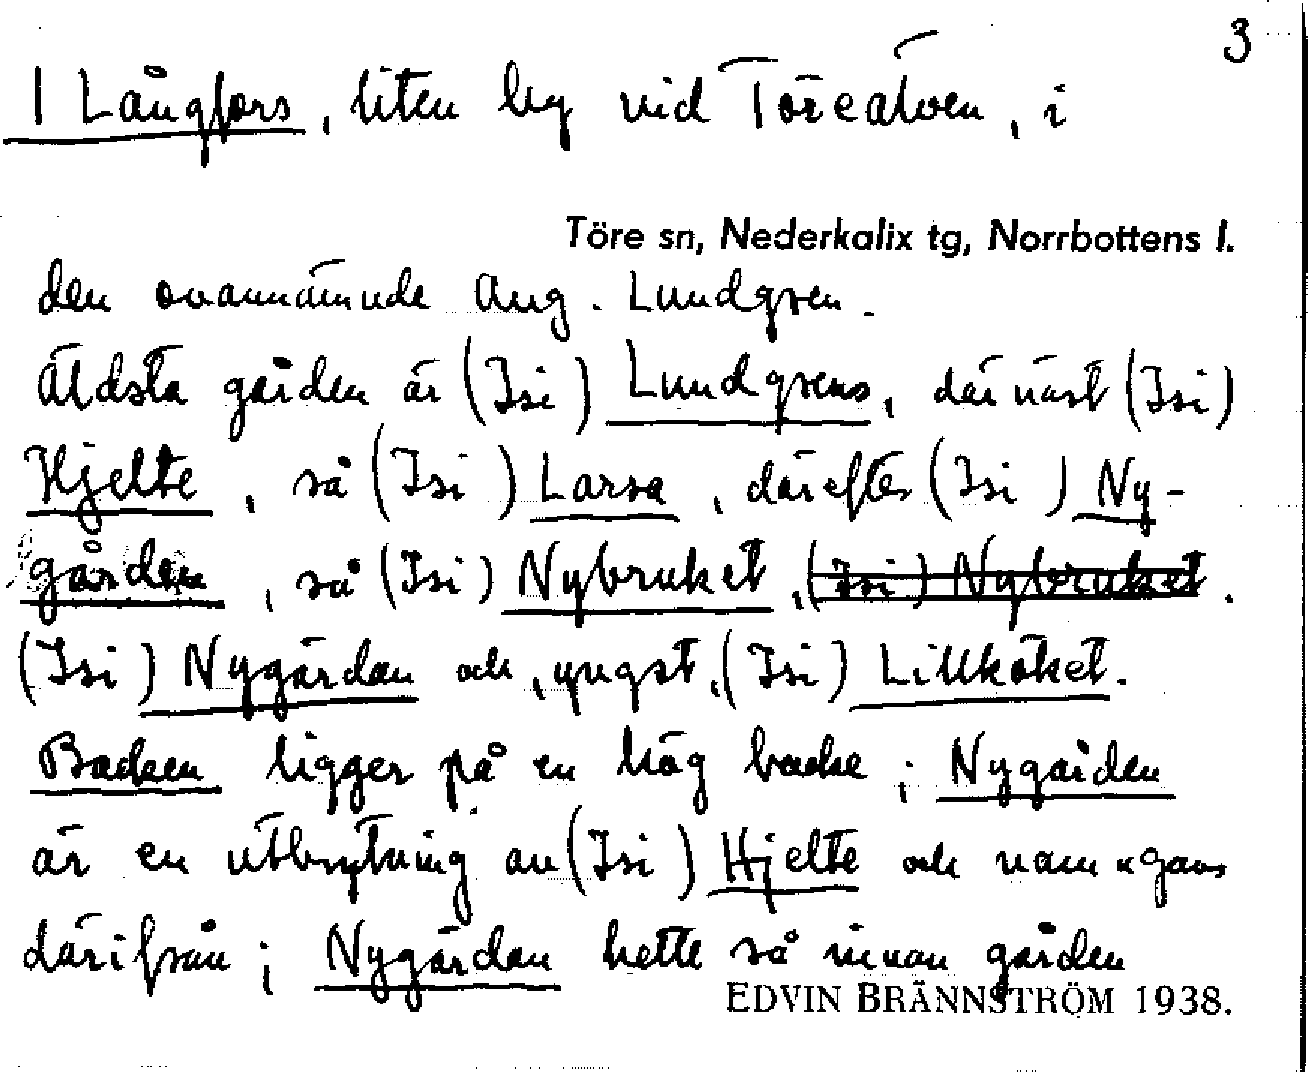 3
I Långfors, liten by vid Töreälven, i
Töre sn, Nederkalix tg, Norrbottens l.
den ovannämnde Aug. Lundgren.
Äldsta gården är (Isi) Lundgrens, därnäst (Isi)
Hjelte, så (Isi) Larsa, därefter (Isi) Ny-
gården, så (Isi) Nybruket, (Isi) Nybruket.
(Isi) Nygärdan och, yngst, (Isi) Lillköket.
Backen ligger på en hög backe; Nygården
är en utbrytning av (Isi) Hjelte och namngavs
därifrån; Nygärdan hette så innan gården
EDVIN BRÄNNSTRÖM 1938.